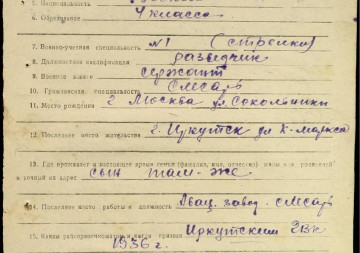 5. Национальность
6. Образование 4 класса
7. Военно-учетная специальность №1 (стрелки)
8. Должностная квалификация разведчик
9. Военное звание сержант
10. Гражданская специальность Слесарь
11. Место рождения г. Москва ул. Сокольники
12. Последнее место жительства г. Иркутск ул К-Маркса
13. Где проживает в настоящее время семья (фамилия, имя, отчество)
и точный их адрес сын там-же
14. Последнее место работы и должность Авиац. завод. слесарь
15. Каким и когда призван Иркутским ГВК
1936 г.